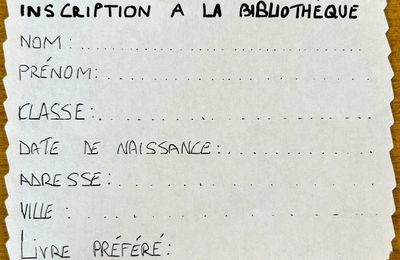 INSCRIPTION A LA BIBLIOTHÈQUE
NOM : ..............................
PRÉNOM: ..............................
CLASSE: ..............................
DATE DE NAISSANCE: ....................
ADRESSE: ..............................
VILLE : ..............................
LIVRE PRÉFÉRÉ: